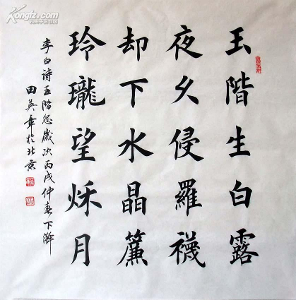 玉階生白露
夜久侵羅襪
却下水晶簾
玲瓏望秌月
李白詩玉階怨歲次丙戌仲春下澣
田英章於北京
Kongfz.com